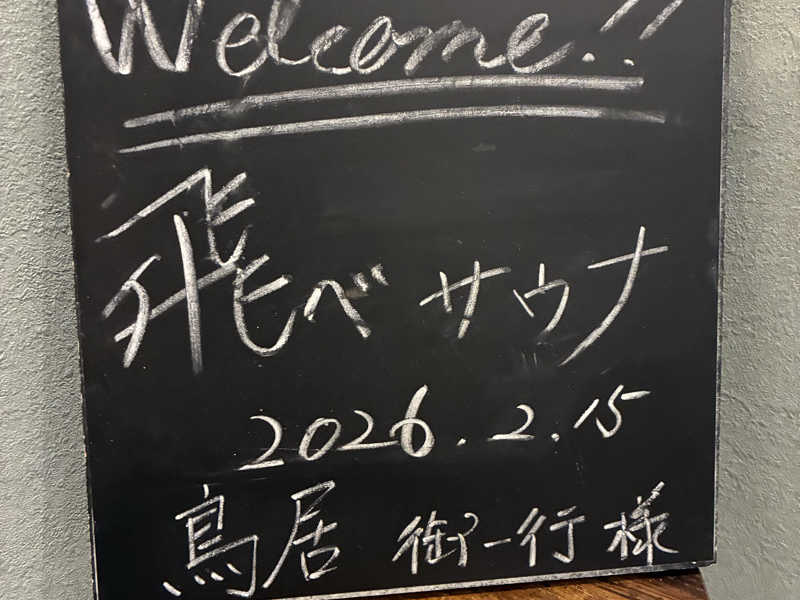 Welcome!!
飛べサウナ
2026.2.15
鳥居 御一行様